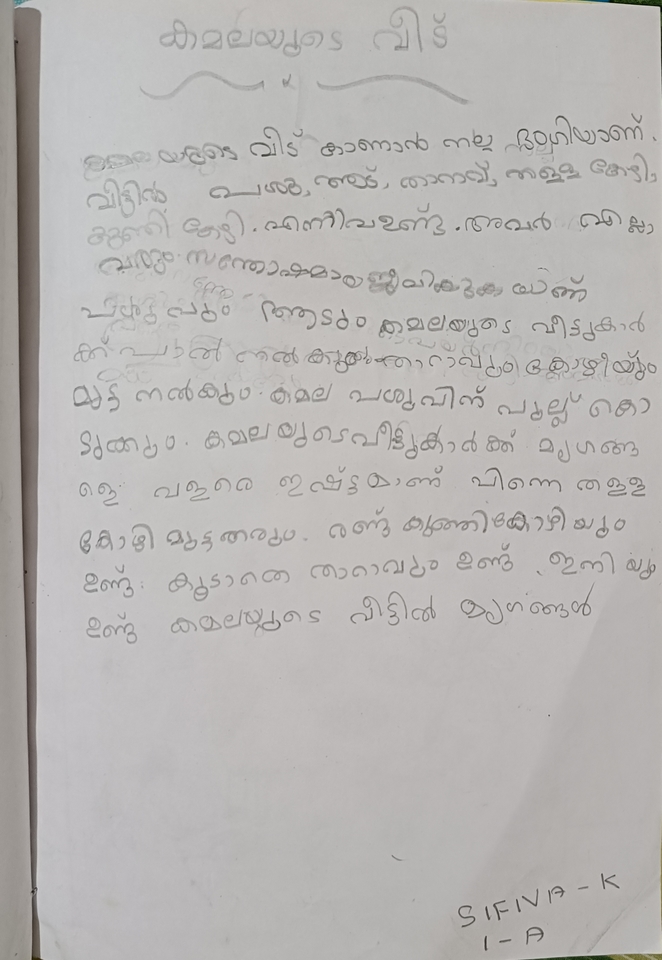 കമലയുടെ വീട്
കമലയുടെ വീട് കാണാൻ നല്ല ഭംഗിയാണ്.
വീട്ടിൽ പശു, ആട്, താറാവ്, തള്ള കോഴി,
കുഞ്ഞി കോഴി. എന്നിവ ഉണ്ട്. അവർ എല്ലാ
വരും സന്തോഷമായ ജീവിക്കുക യാണ്
പശുവും ആടും കമലയുടെ വീട്ടുകാർ
ക്ക് പാൽ നൽകും താറാവും കോഴിയും
മുട്ട നൽകും. കമല പശുവിന് പുല്ല് കൊ
ടുക്കും. കമലയുടെ വീട്ടുകാർക്ക് മൃഗങ്ങ
ളെ വളരെ ഇഷ്ട്ടമാണ് പിന്നെ തള്ള
കോഴി മുട്ട തരും. രണ്ട് കുഞ്ഞികോഴിയും
ഉണ്ട്. കൂടാതെ താറാവും ഉണ്ട്. ഇനിയും
ഉണ്ട് കമലയുടെ വീട്ടിൽ മൃഗങ്ങൾ
SIFIVA - K
1 - A